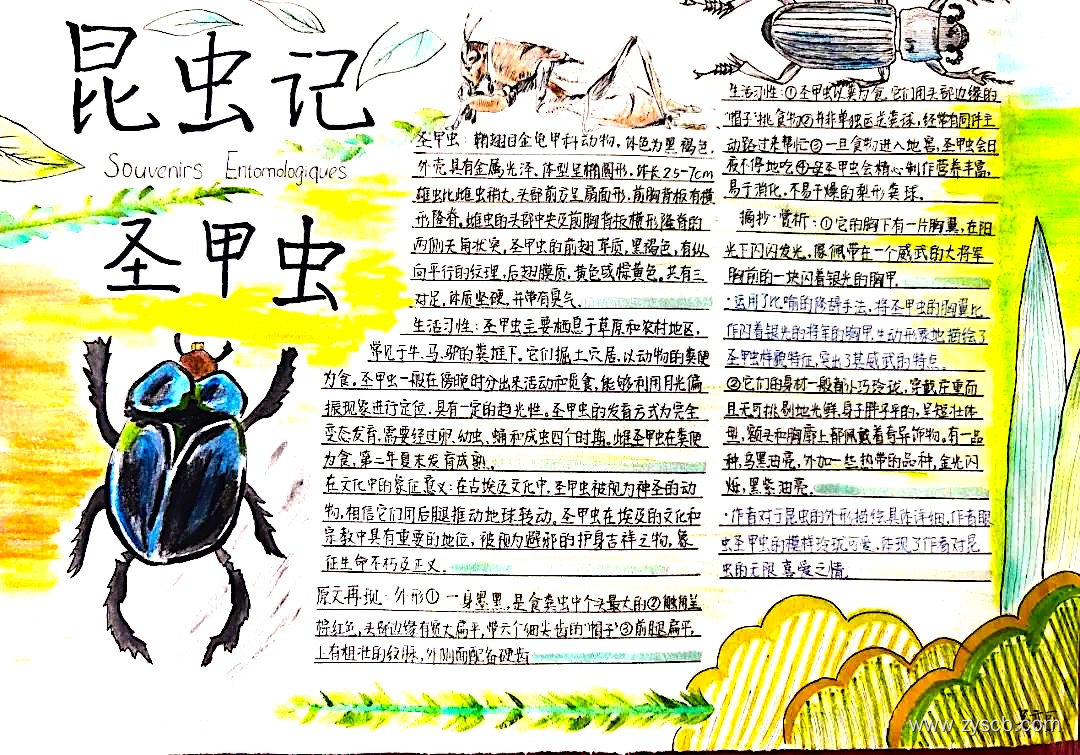 昆虫记
Souvenirs Entomologiques
圣甲虫
圣甲虫:鞘翅目金龟甲科动物,体色为黑褐色,
外壳具有金属光泽,体型呈椭圆形,体长2.5-7cm
雄虫比雌虫稍大,头部前方呈扇面形,前胸背板有横
形隆脊。雌虫的头部中央及前胸背板横形隆脊的
两侧无角状突,圣甲虫的前翅革质,黑褐色,有纵
向平行的纹理,后翅膜质,黄色或棕黄色。共有三
对足,体质坚硬,并带有臭气。
生活习性:圣甲虫主要栖息于草原和农村地区,
常见于牛、马、驴的粪堆下。它们掘土穴居,以动物的粪便
为食。圣甲虫一般在傍晚时分出来活动和觅食,能够利用月光偏
振现象进行定位,具有一定的趋光性。圣甲虫的发育方式为完全
变态发育,需要经过卵、幼虫、蛹和成虫四个时期。雌圣甲虫在粪便
为食,第二年夏末发育成熟。
在文化中的象征意义:在古埃及文化中,圣甲虫被视为神圣的动
物,相信它们用后腿推动地球转动。圣甲虫在埃及的文化和
宗教中具有重要的地位,被视为避邪的护身吉祥之物,象
征生命不朽及正义。
原文再现·外形① 一身墨黑,是食粪虫中个头最大的②触角呈
棕红色,头部边缘有宽大扁平,带六个细尖齿的"帽子"③前腿扁平,
上有粗壮的纹脉,外侧面配备硬齿
生活习性:①圣甲虫以粪为食,它们用头部边缘的
"帽子"挑食物②并非单独运送粪球,经常有同伴主
动跑过来帮忙③一旦食物进入地窖,圣甲虫会日
夜不停地吃④母圣甲虫会精心制作营养丰富,
易于消化,不易干燥的梨形粪球。
摘抄·赏析:①它的胸下有一片胸翼,在阳
光下闪闪发光,像佩带在一个威武的大将军
胸前的一块闪着银光的胸甲。
·运用了比喻的修辞手法,将圣甲虫的胸翼比
作闪着银光的将军的胸甲,生动形象地描绘了
圣甲虫样貌特征,突出了其威武的特点
②它们的身材一般都小巧玲珑,穿戴庄重而
且无可挑剔地光鲜,身子胖乎乎的,呈短壮体
型,额头和胸廓上都佩戴着奇异饰物。有一品
种,乌黑油亮,外加一些热带的品种,金光闪
烁,黑紫油亮。
·作者对于昆虫的外形描绘具体详细,作者眼
虫圣甲虫的模样玲珑可爱,体现了作者对昆
虫的无限喜爱之情
www.zyscb.com